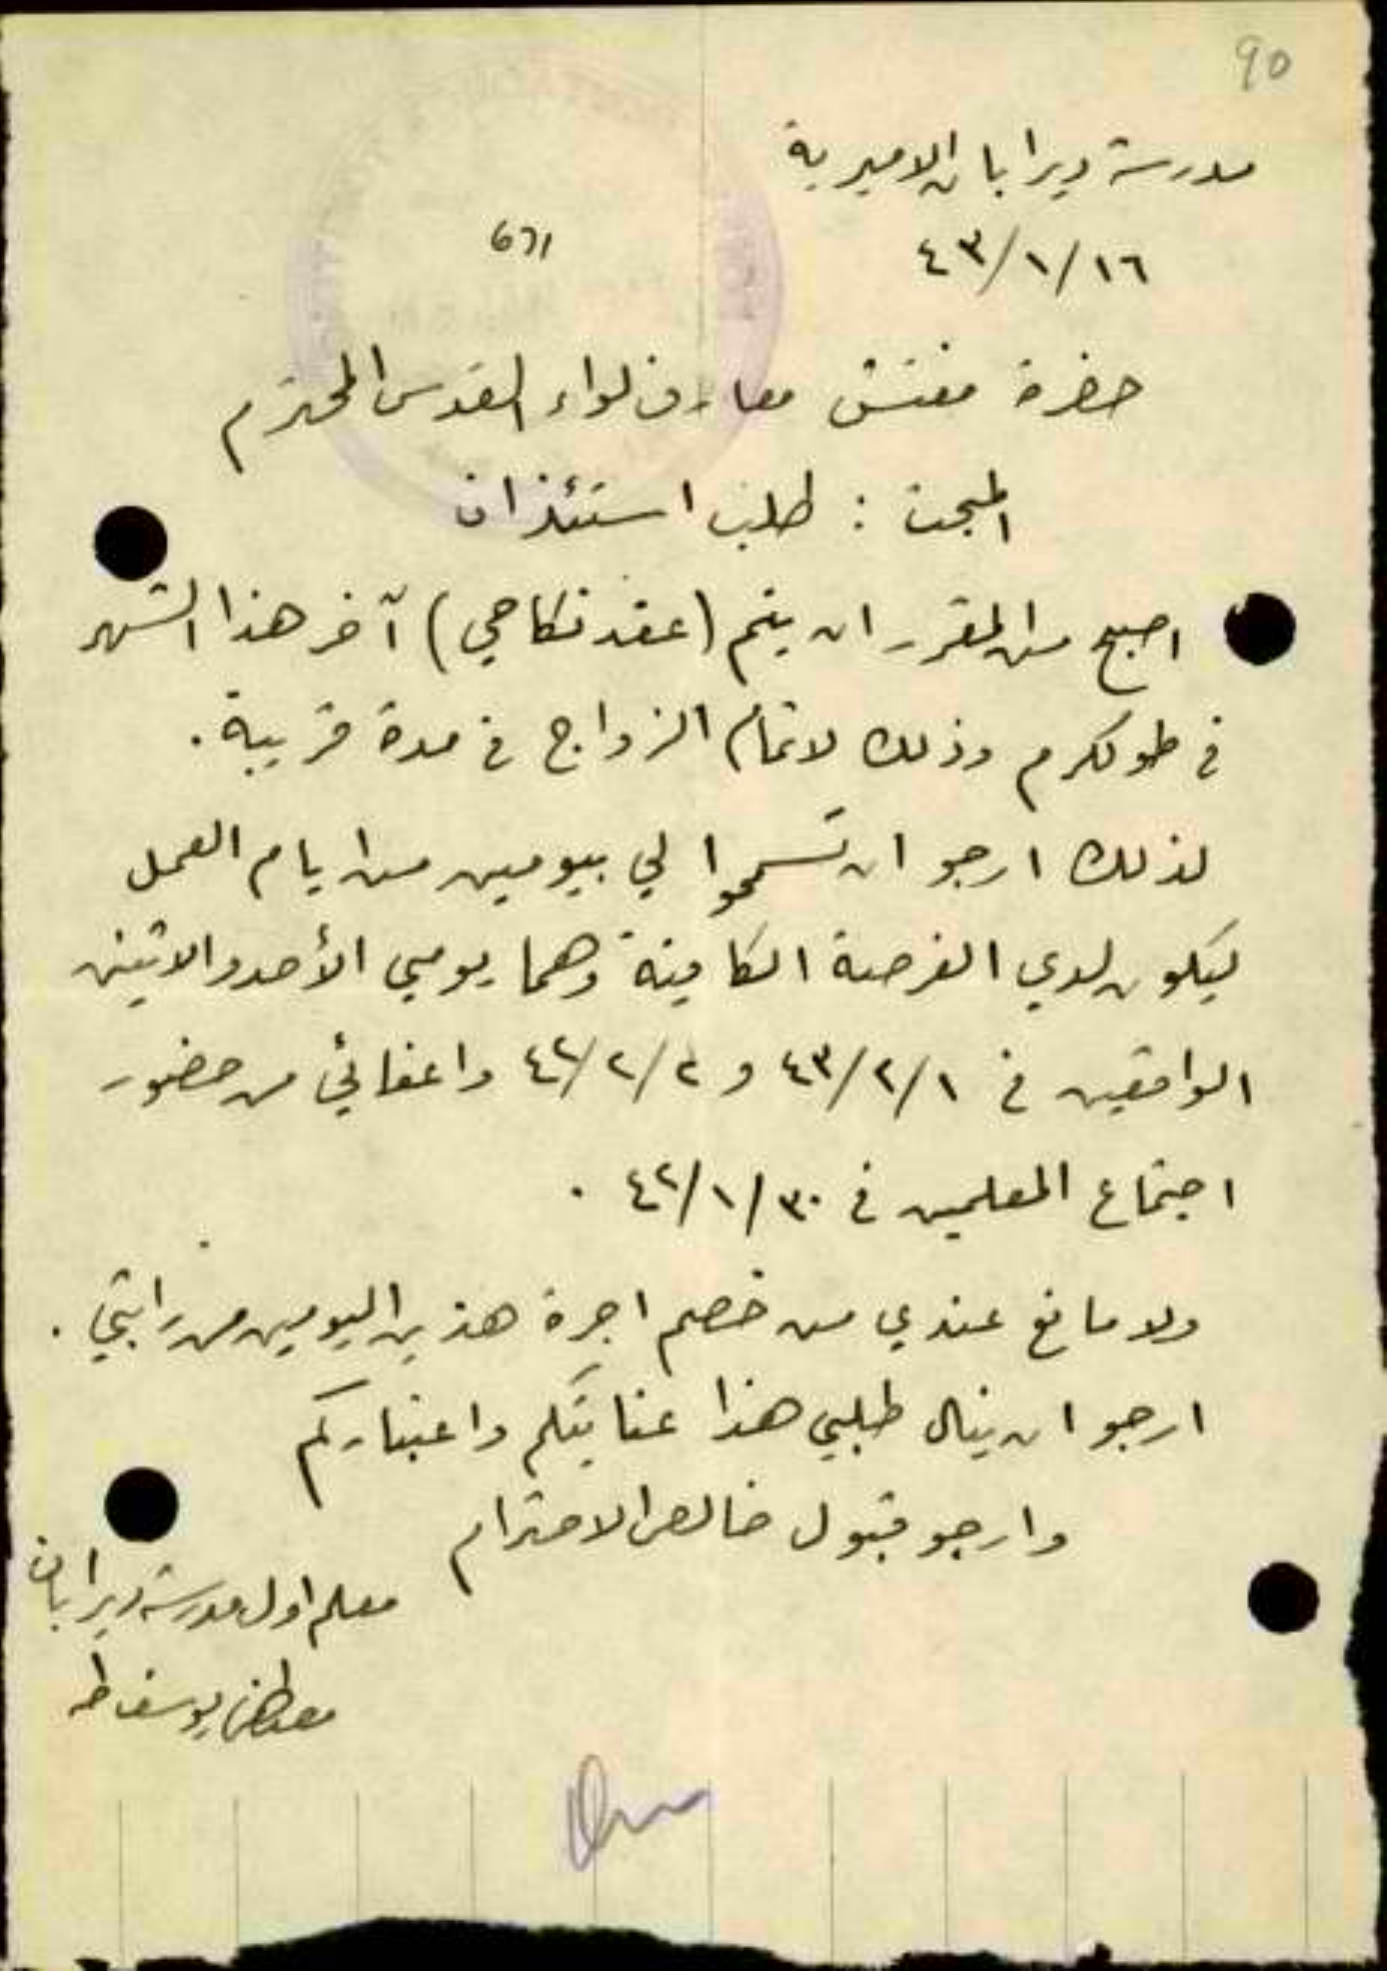 90
مدرسة ديرابان الاميرية
٤٣/١/١٦
حضرة مفتش معارف لواء القدس المحترم
المبحث : طلب استئذان
اصبح من المقرر ان يتم (عقد نكاحي) آخر هذا الشهر
في طولكرم وذلك لاتمام الزواج في مدة قريبة .
لذلك ارجو ان تسمحوا لي بيومين من ايام العمل
ليكون لدي الفرصة الكافية وهما يومي الأحد والاثنين
الواقعين في ٤٣/٢/١ و ٤٣/٢/٢ واعفائي من حضور
اجتماع المعلمين في ٤٣/١/٣٠ .
ولا مانع عندي من خصم اجرة هذين اليومين من راتبي .
ارجو ان ينال طلبي هذا عنايتكم واعتباركم
وارجو قبول خالص الاحترام
معلم اول مدرسة ديرابان
مصطفى يوسف طه